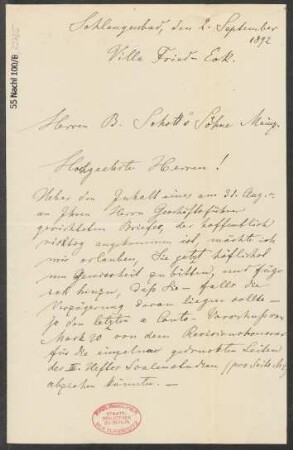 55 Nachl 100/B
Schlangenbad, den 2. September
1892
Villa Fried-Eck.
Herren B. Schott's Söhne Mainz.
Hochgeehrte Herren!
Ueber den Inhalt eines am 31. Aug.
an Ihren Herrn Geschäftsführer
gerichteten Briefes, der hoffentlich
richtig angekommen ist, möchte ich
mir erlauben, Sie jetzt höflichst
um Gewissheit zu bitten, und füge
noch hinzu, daß Sie falls die
Verzögerung daran liegen sollte
ja den letzten a Conto-Vorschuss von
Mark 20 von dem Revisionshonorar
für die einzelnen gedruckten Seiten
des III. Heftes (pro Seite
abziehen könnten. —